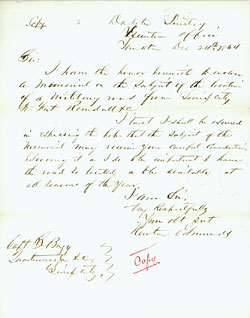 Copy
Dakota Territory
Executive Office
Dec 20th 1864
Sir:
I have the honor herewith to enclose
a Memorial on the subject of the location
of a Military road from Sioux City
to Fort Randall &c
I trust I shall be excused
in expressing the hope that the subject of the
Memorial may receive your careful consideration
believing it as I do important to have
the road so located, as to be available at
all seasons of the year,
I am Sir,
Very Respectfully
Your obt Svt
Newton Edmunds
Capt
Sioux City
Copy